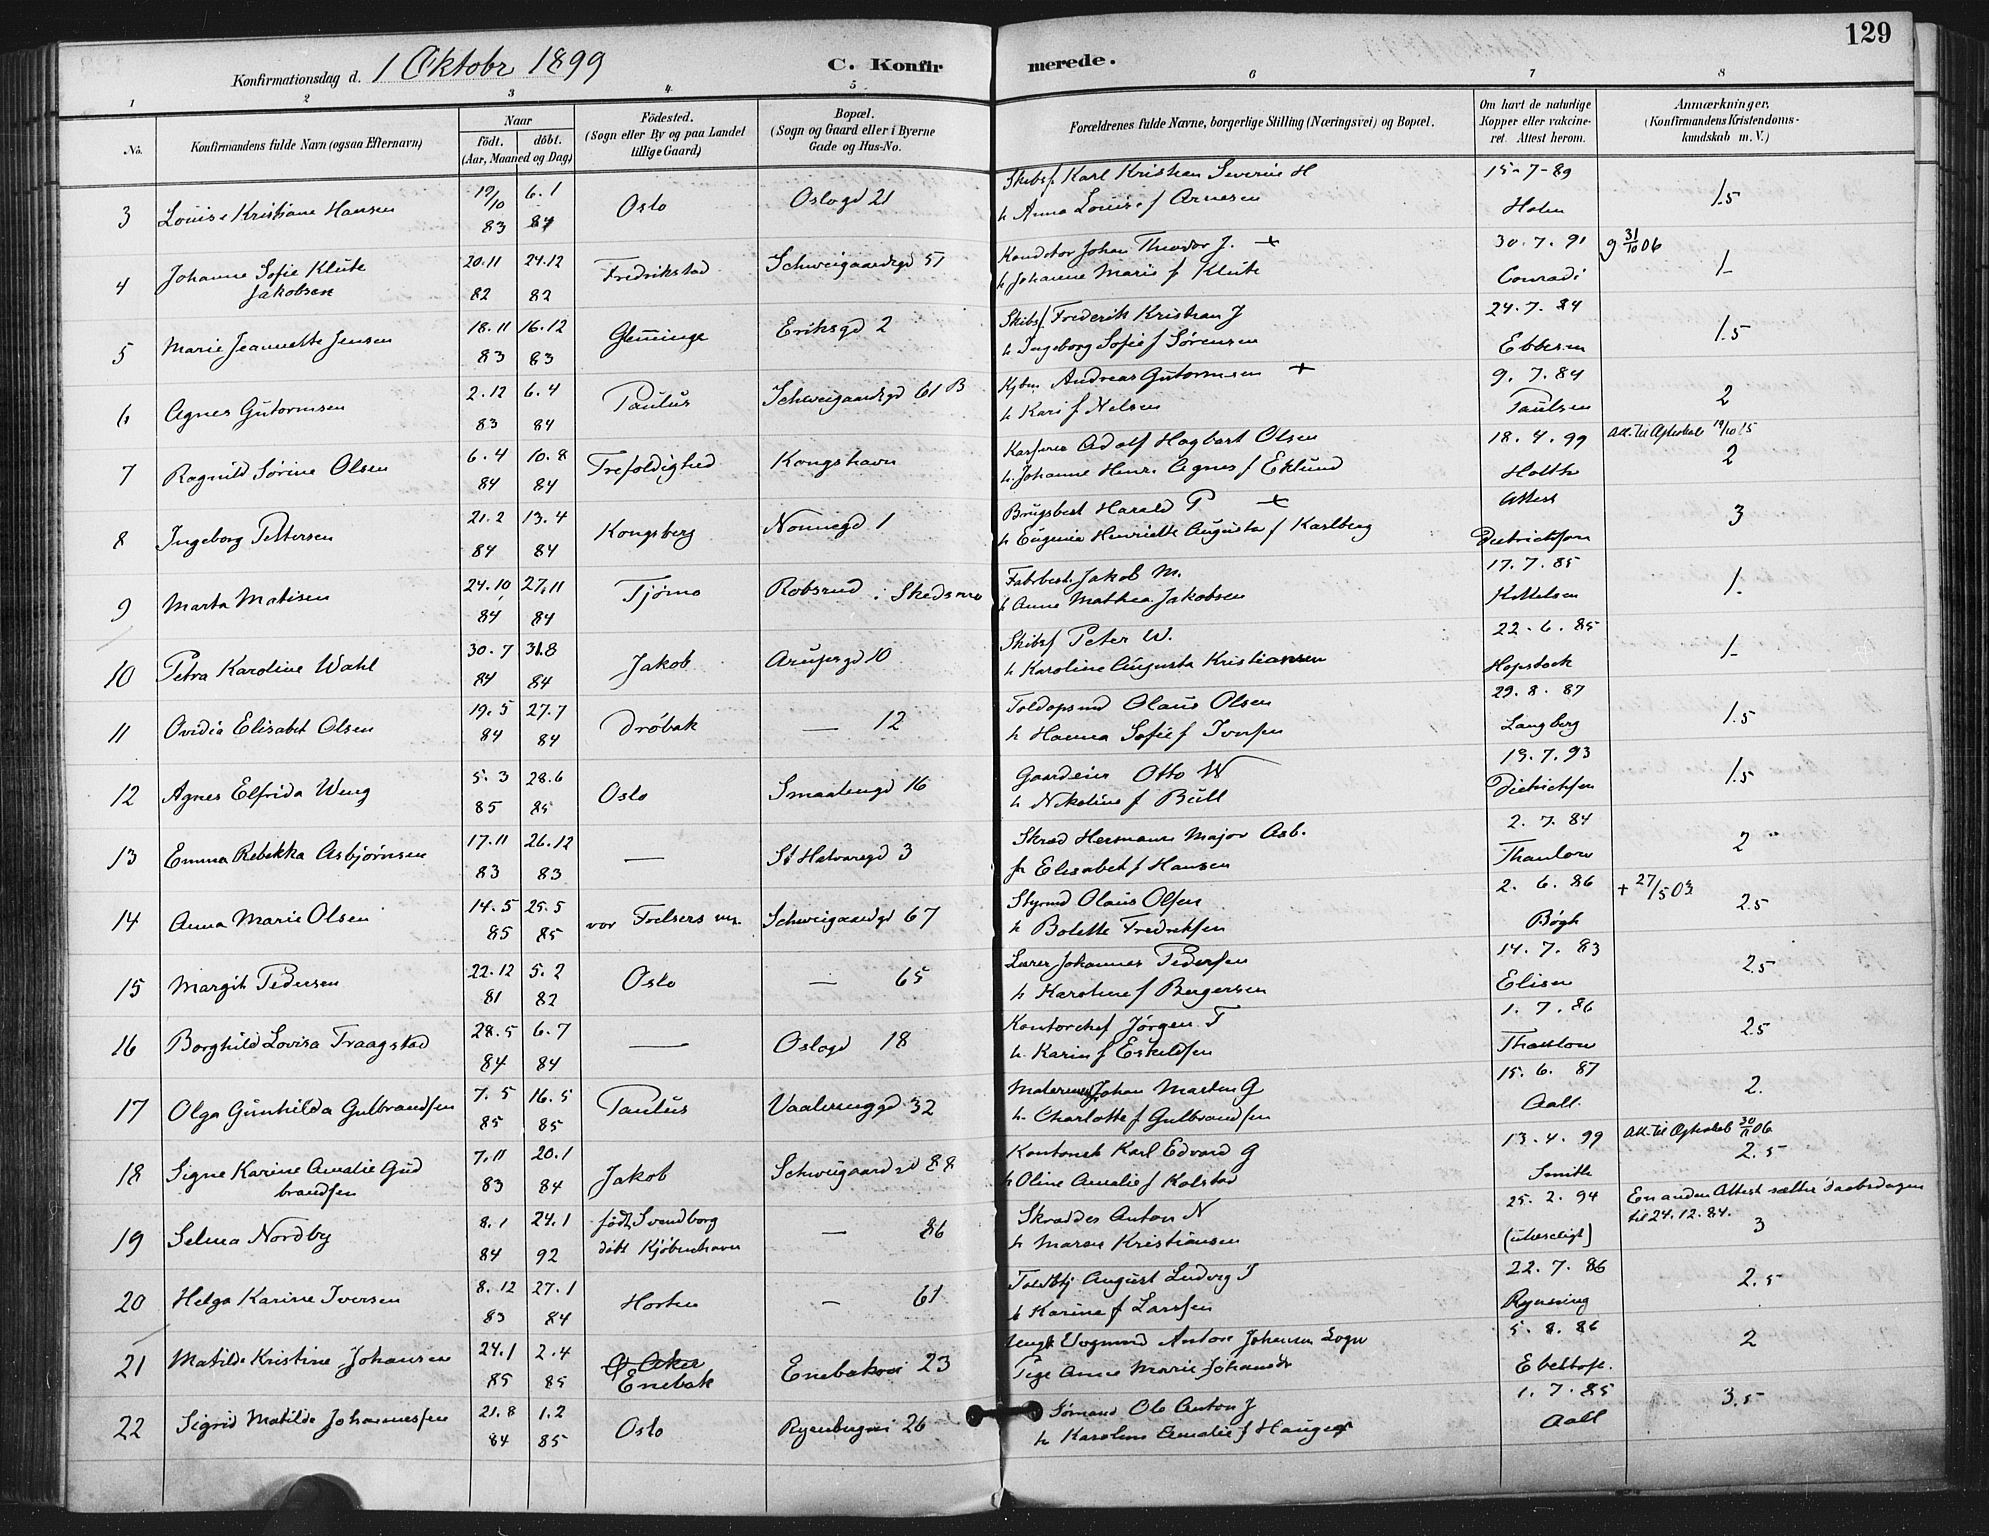 129
Konfirmationsdag d. 1 Oktobr 1899 C. Konfirmerede.
1 2 3 4 5 6 7 8
No. Konfirmandens fulde Navn (ogsaa Efternavn) Naar født. døbt. (Aar, Maaned og Dag) Fødested. (Sogn eller By og paa Landet tillige Gaard) Bopæl. (Sogn og Gaard eller i Byerne Gade og Hus-No. Forældrenes fulde Navne, borgerlige Stilling (Næringsvei) og Bopæl. Om havt de naturlige Kopper eller vakcineret. Attest herom. Anmærkninger, (Konfirmandens Kristendomskundskab m. V.)
3 Louise Kristiane Hansen 19/10 83 6.1 84 Oslo Oslogd 21 Skibsf Karl Kristian Severin H 15-7-89 1.5
h Anna Louise f Arnesen Holm
4 Johanne Sofie Klute Jakobsen 20.11 82 24.12 82 Fredrikstad Schweigaardsgd 51 Konduktor Johan Theodor J. + 30.7.91 g 31/10 06 1-
h Johanne Marie f Klute Conradi
5 Marie Jeannette Jensen 18.11 83 16.12 83 Glemminge Eriksgd 2 Skibsf. Frederik Kristian J 24.7.84 1.5
h Ingeborg Sofie f Sørensen Ebbesen
6 Agnes Gutormsen 2.12 83 6.4 84 Paulus Schweigaardsgd 61 B Kjbm. Andreas Gutormsen + 9.7.84 2
h Kari f Nelsen Paulsen
7 Ragnild Sørine Olsen 6.4 84 10.8 84 Trefoldighed Kongshavn Adolf Hagbart Olsen 18.4.99 Att. til 19/10 15 2
h. Johanne Henr. Agnes f Eklund Holth
8 Ingeborg Pettersen 21.2 84 13.4 84 Kongsberg Nonnegd 1 Brugsbest Harald P + Attest 3
h Eugenie Henriette Augusta f Karlberg Dietrichson
9 Marta Matisen 24.10 84 27.11 84 Tjømo Robsrud i Skedsmo Fabrbest. Jakob M. 17.7.85 1.
h Anne Mathea Jakobsen Kittelsen
10 Petra Karoline Wahl 30.7 84 31.8 84 Jakob Arupsgd 10 Skibsf Peter W. 22.6.85 1-
h Karoline Augusta Kristiansen Hopstock
11 Ovidia Elisabet Olsen 19.5 84 27.7 84 Drøbak — 12 Toldopsmd Olaus Olsen 29.8.87 1.5
h Hanna Sofie f Iversen Langberg
12 Agnes Elfrida Weng 5.3 85 28.6 85 Oslo Smaalengd 16 Gaardeier Otto W 13.7.93 1.5
h Nikoline f Bull Dietrichsen
13 Emma Rebekka Asbjørnsen 17.11 83 26.12 83 — St Halvardsgd 3 Skræd Hermann Major Asb. 2.7.84 2
h Elisabet f Hansen Thaulow
14 Anna Marie Olsen 14.5 85 25.5 85 vor Frelsers Schweigaardsgd 67 Styrmd Olaus Olsen 2.6.86 + 27/5 03 2.5
h Bolette Fredriksen Bøgh
15 Margit Pedersen 22.12 81 5.2 82 Oslo — 65 Lærer Johannes Pedersen 14.7.83 2.5
h Karoline f Bergersen Elisen
16 Borghild Lovisa Traagstad 28.5 84 6.7 84 — Oslogd 18 Kontorchef Jørgen T 1.7.86 2.5
h. Karin f Eskildsen Thaulow
17 Olga Gunhilda Gulbrandsen 7.5 85 16.5 85 Paulus Vaalerenggd 32 Johan Martin G 15.6.87 2.
h. Charlotte f Gulbrandsen Aall.
18 Signe Karine Amalie Gudbrandsen 7.11 83 20.1 84 Jakob Schweigaardsgd 88 Kontorist Karl Edvard G 13.4.99 Att. til 30/11 06 2.5
h Oline Amalie f Kolstad Smith
19 Selma Nordby 8.1 84 24.1 92 født Svendborg døbt Kjøbenhavn — 86 Skrædder Anton N 25.2.94 En anden Attest sætter daabsdagen til 24.12.84. 3
h Maren Kristiansen (ulæseligt)
20 Helga Karine Iversen 8.12 83 27.1 84 Horten — 61 August Ludvig I 22.7.86 2.5
h Karine f Larssen Rynning
21 Matilde Kristine Johansen 24.1 85 2.4 85 Ø Aker Enebak Enebakvei 23 Ungk Vognmd Anton Johansen Sogn 5.8.86 2
Pige Anne Marie Johansdr
22 Sigrid Matilde Johannessen 21.8 84 1.2 85 Oslo Ryenbergvei 26 Sømand Ole Anton J 1.7.85 3.5
h Karoline Amalie f Hauger Aall